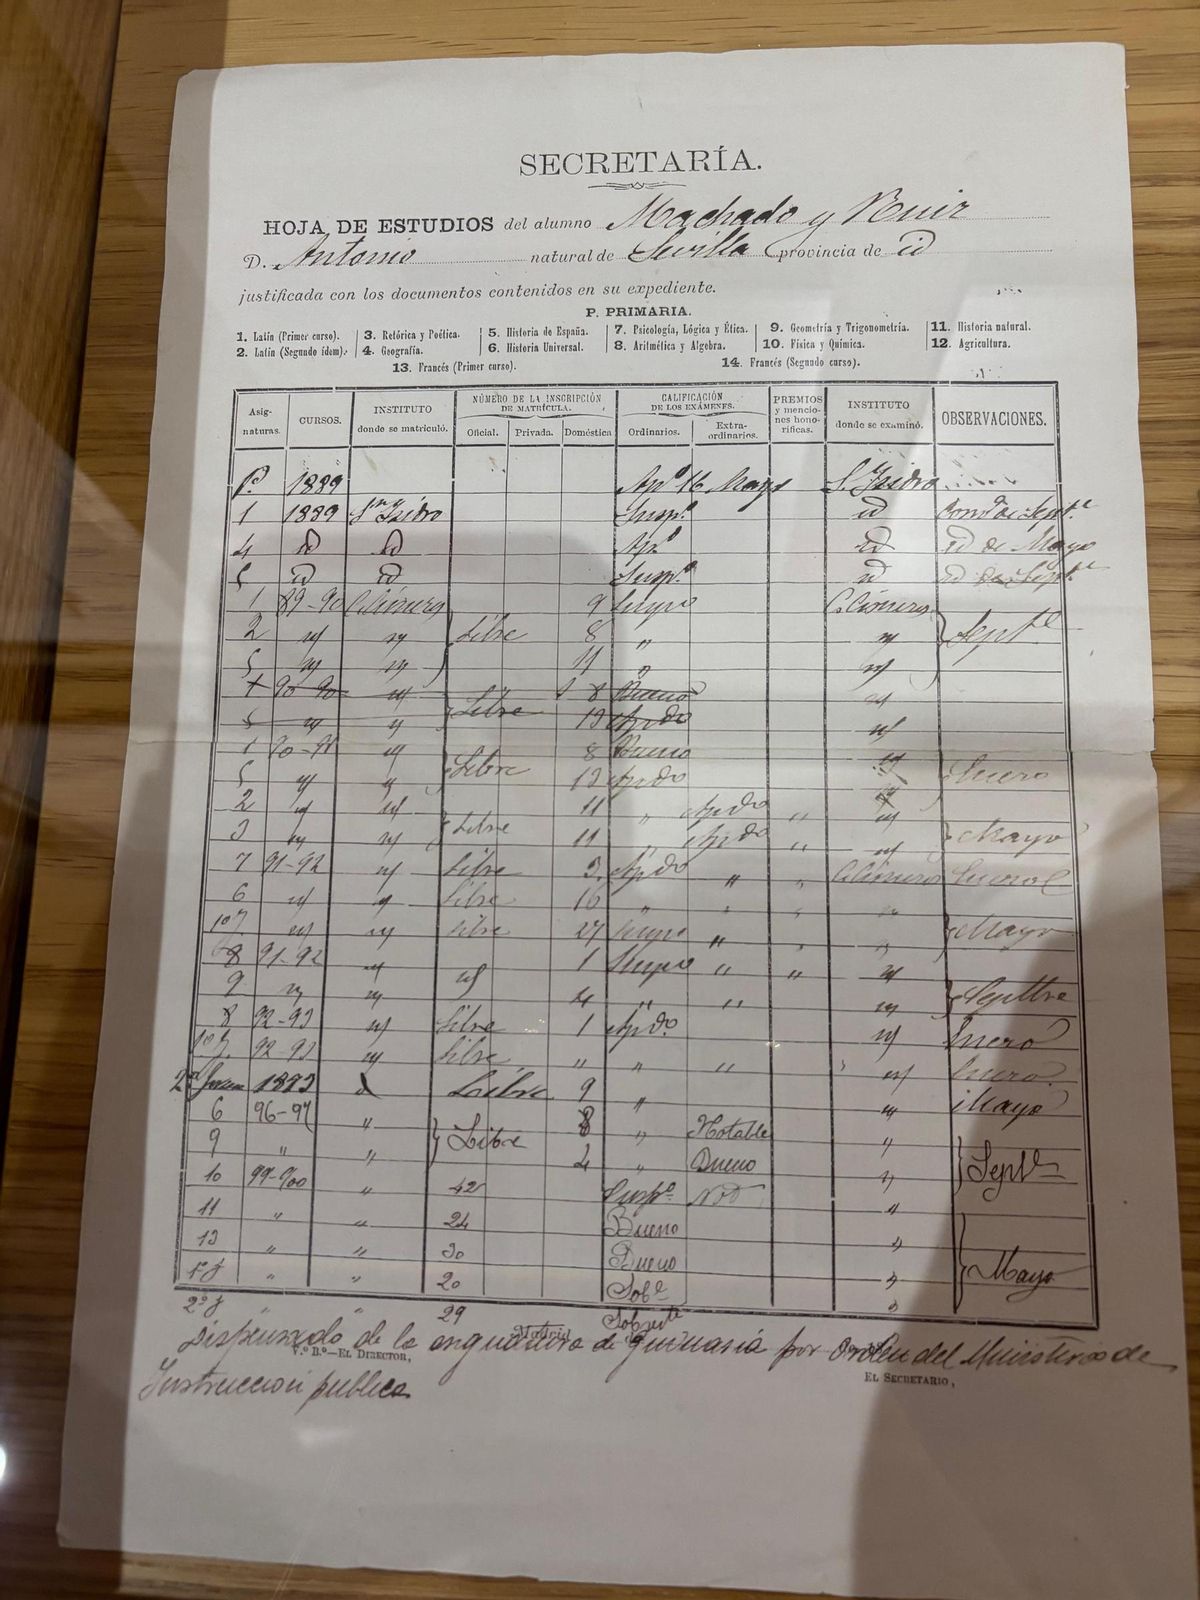 SECRETARÍA.
HOJA DE ESTUDIOS del alumno Machado y Ruiz
D. Antonio natural de Sevilla provincia de id
justificada con los documentos contenidos en su expediente.
P. PRIMARIA.
1. Latín (Primer curso). 3. Retórica y Poética. 5. Historia de España. 7. Psicología, Lógica y Ética. 9. Geometría y Trigonometría. 11. Historia natural.
2. Latín (Segundo ídem). 4. Geografía. 6. Historia Universal. 8. Aritmética y Algebra. 10. Física y Química. 12. Agricultura.
13. Francés (Primer curso). 14. Francés (Segundo curso).
Asignaturas. CURSOS. INSTITUTO donde se matriculó. NÚMERO DE LA INSCRIPCIÓN DE MATRÍCULA. CALIFICACIÓN DE LOS EXÁMENES. PREMIOS y menciones honoríficas. INSTITUTO donde se examinó. OBSERVACIONES.
Oficial. Privada. Doméstica Ordinarios. Extraordinarios.
P. 1889 Apdo 16 Mayo S. Isidro
1 1889 Sn Isidro Suspo id de Septe
4 id id Apdo id id de Mayo
5 id id Suspo id id de Septe
1 89-90 C. Cisneros 9 Suspo C. Cisneros
2 " " Libre 8 " " Septe
5 " " 11 " "
1 90-90 " 8 Bueno "
5 " " Libre 12 Apdo "
1 90-91 " 8 Bueno "
5 " " Libre 12 Apdo " Enero
2 " " 11 " Apdo " "
3 " " Libre 11 " Apdo " " Mayo
7 91-92 " Libre 3 Apdo " " C. Cisneros Enero
6 " " Libre 16 " " " "
" " Libre 27 Suspo " " " Mayo
8 91-92 " " 1 Suspo " " "
9 " " 4 " " " Septbre
8 92-93 " Libre 1 Apdo " Enero
92-93 " Libre " " " " Enero
1893 Libre 9 " " Mayo
6 96-97 " 8 " Notable "
9 " " Libre 4 " Bueno " Septe
10 99-900 " 42 Suspo Not "
11 " " 24 Bueno "
13 " " 30 Bueno " Mayo
" " 20 Sobe "
" " 29 Sobreste
Madrid
Dispensado de la asignatura de Gimnasia por Orden del Ministerio de
V.º B.º—EL DIRECTOR,
EL SECRETARIO,
Instruccion publica